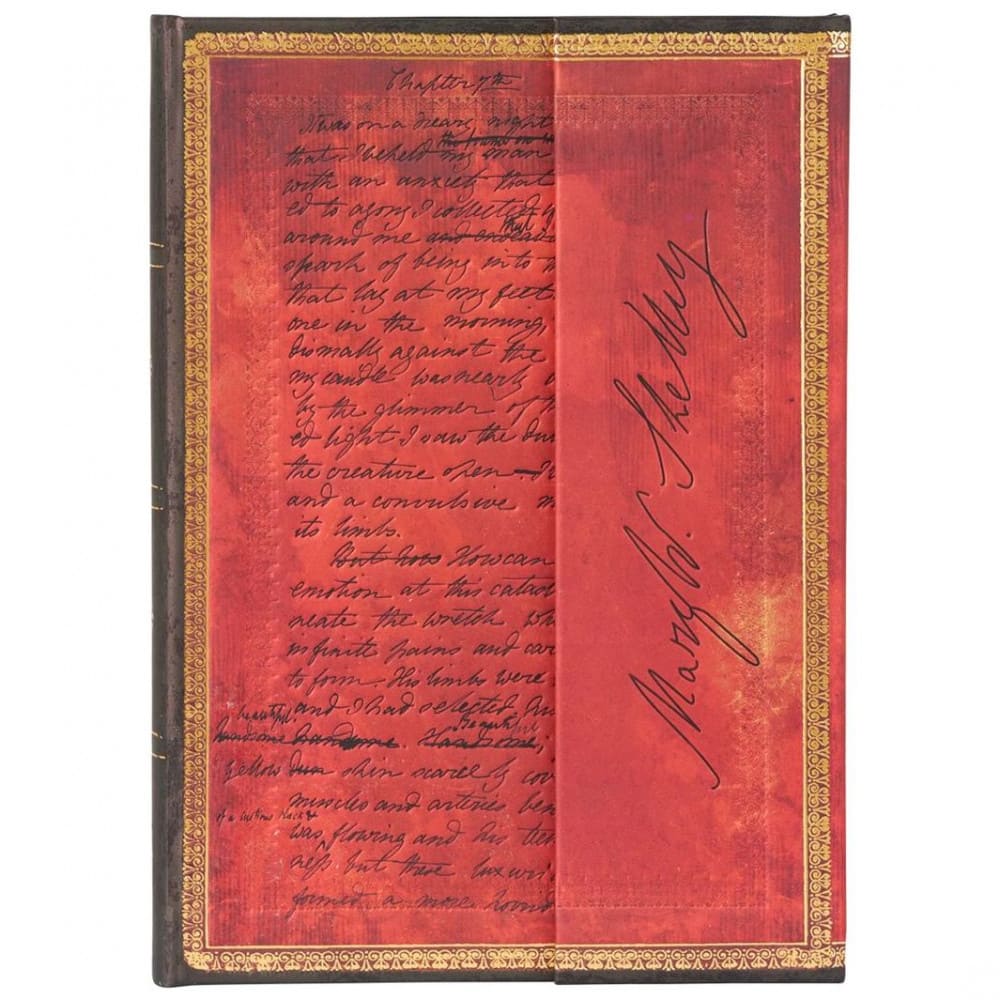 Chapter 7th
It was on a dreary night
the frame on
that I beheld my man
with an anxiety that
ed to agony I collected
that
around me and endeav
spark of being into
that lay at my feet.
one in the morning,
dismally against the
my candle was nearly
by the glimmer of
ed light I saw the du
the creature open
and a convulsive m
its limbs.
But how How can
emotion at this catas
neate the wretch wh
infinite pains and car
to form. His limbs were
and I had selected
beautiful. Beautiful
handsome handsome. Handsome,
yellow dun skin scarcely cov
muscles and arteries ben
of a lustrous black &
was flowing and his tee
ness but these luxuri
formed a more horrid
Mary W. Shelley